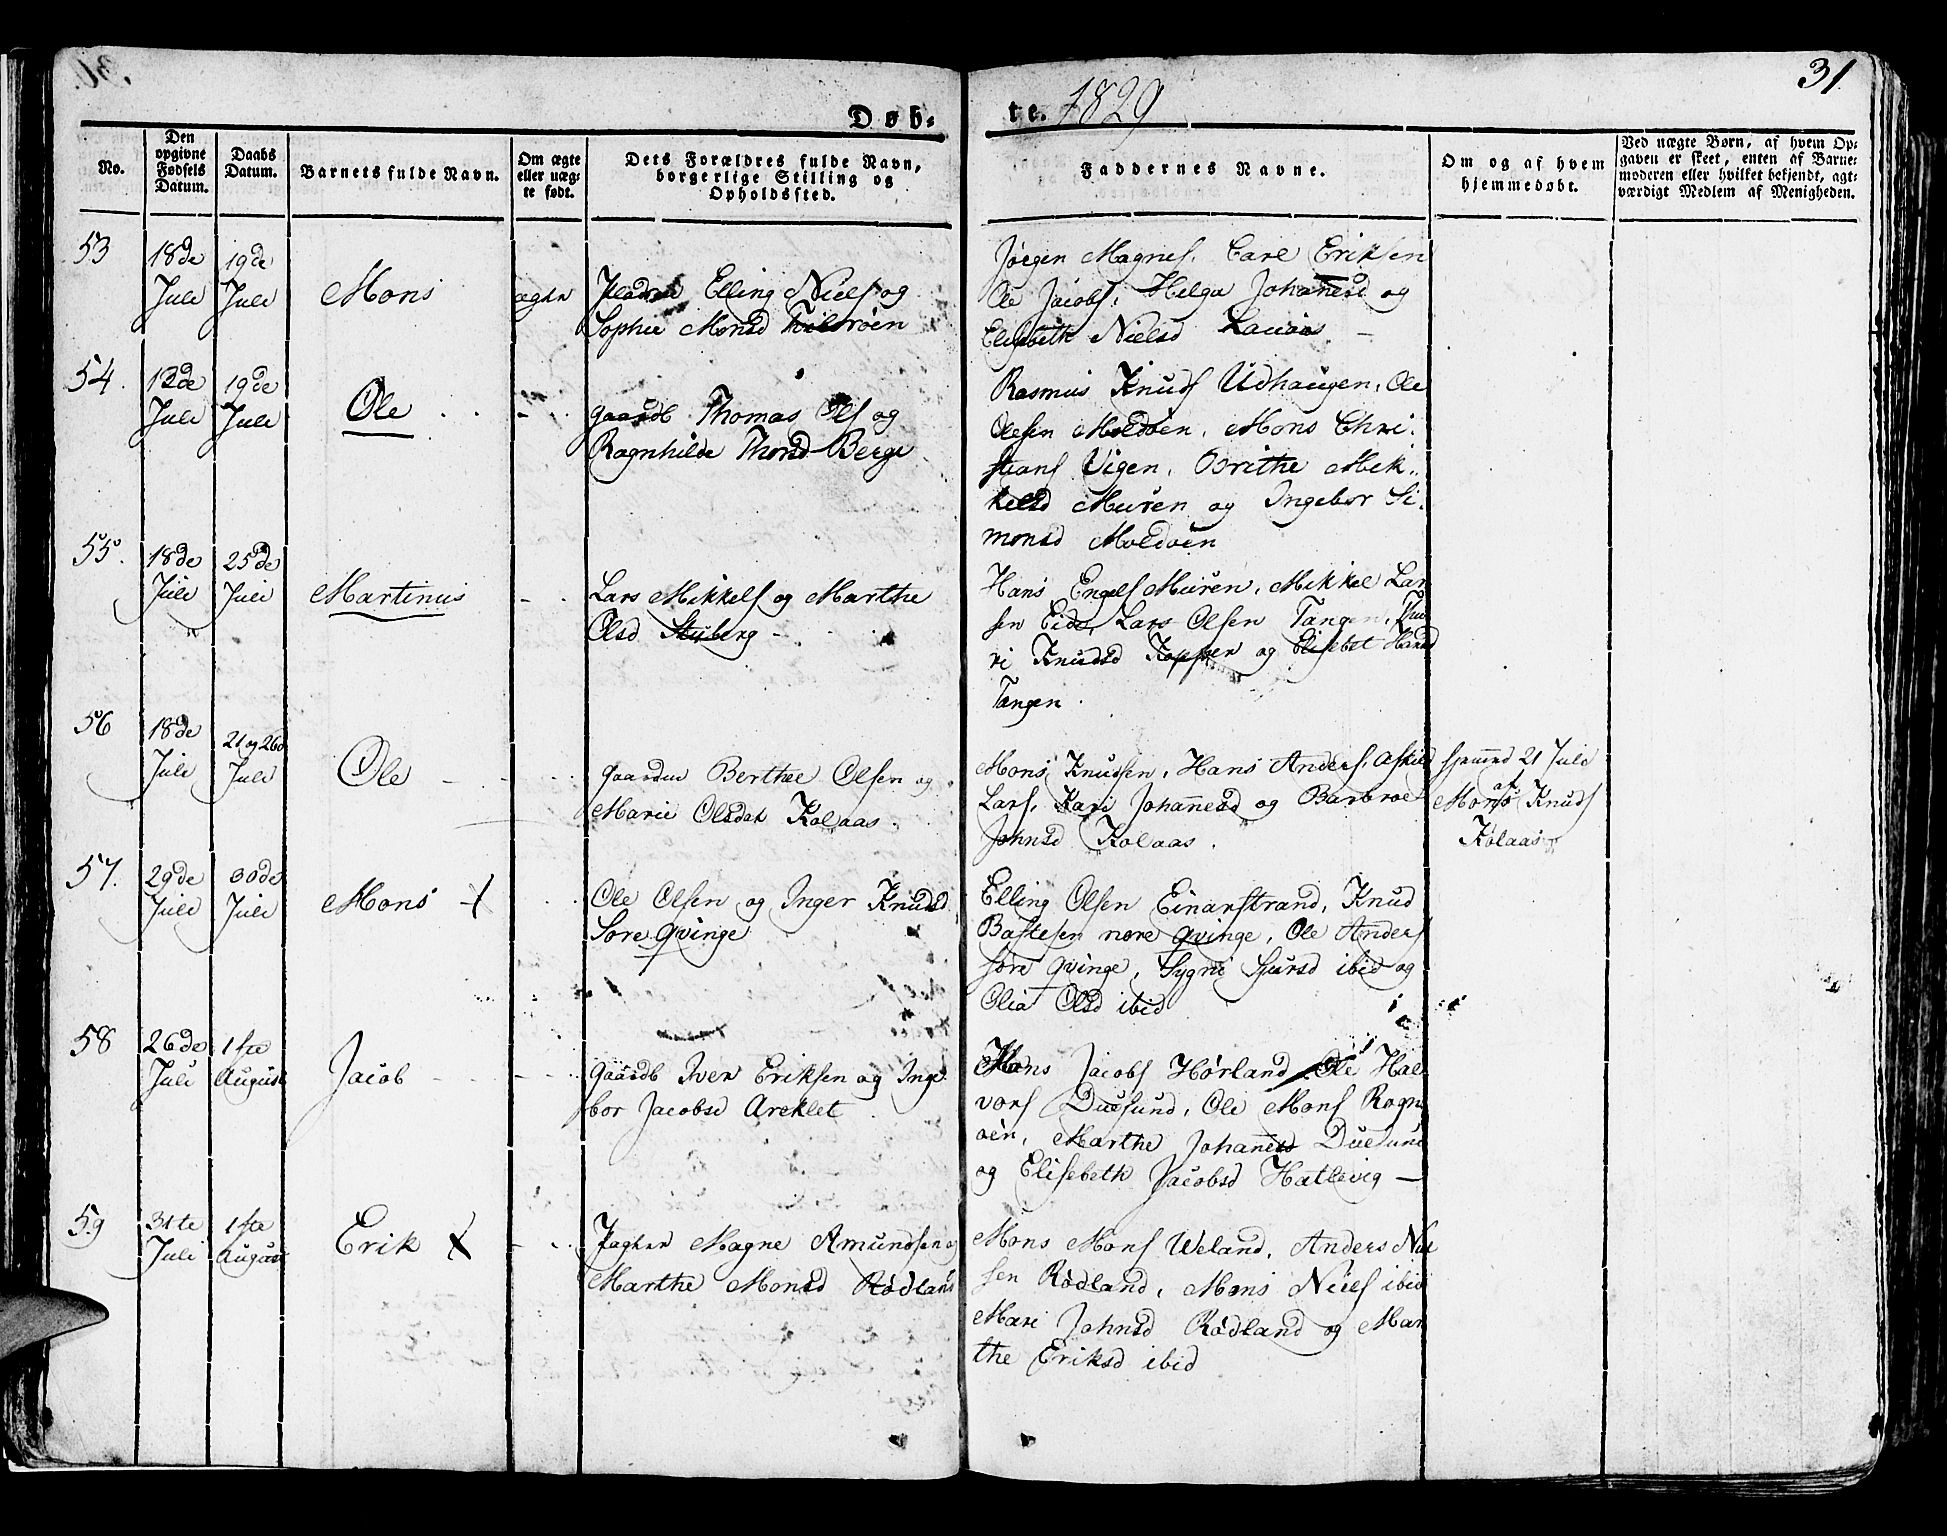 Døb-
te. 1829
31.
No.
Den opgivne Fødsels Datum.
Daabs Datum.
Barnets fulde Navn.
Om ægte eller uægte født.
Dets Forældres fulde Navn, borgerlige Stilling og Opholdssted.
Faddernes Navne.
Om og af hvem hjemmedøbt.
Ved uægte Børn, af hvem Opgaven er skeet, enten af Barnemoderen eller hvilket bekjendt, agtværdigt Medlem af Menigheden.
53
18de Juli
19de Juli
Mons
ægte
Elling Niels og
Sophie Monsd
Jørgen Magnes. Carl Eriksen
Ole Jacobs, Helga Johanesd og
Elisebeth Nielsd
54.
12de Juli
19de Juli
Ole
-
gaardb Thomas Ols og
Ragnhilde Thomsd Berge
Rasmus Knuds Udhaugen, Ole
Olesen Moldøen, Mons Chri-
stians Vigen, Brithe Mek-
kelsd Muren og Ingebor Si-
monsd Moldøen
55.
18de Juli
25de Juli
Martinus
-
Lars Mikkels og Marthe
Olsd Styberg -
Hans Engels Muren, Mikkel Lar-
sen Eide, Lars Olsen Tangen,
ri Knudsd og Elisebet Hansd
Tangen.
56
18de Juli
21 og 26de Juli
Ole
- -
gaardm Berthel Olsen og
Marie Olsdat Kolaas.
Mons Knudsen, Hans Anders, Askild
Lars, Kari Johannesd og Barbroe
Johnsd Kolaas.
hjemmed 21 Juli
af
Mons Knuds
Kolaas
57.
29de Juli
30de Juli
Mons +
Ole Olsen og Inger Knudsd
Søre Qvinge
Elling Olsen Einarstrand, Knud
Bastesen nore qvinge, Ole Anders
søre qvinge, Sygni Sjursd ibid og
Olia Olsd ibid
58
26de Juli
1ste August
Jacob
-
gaardb Iver Eriksen og Inge-
bor Jacobsd Areklet.
Mons Jacobs Hørland, Ole Hal-
vors Duesund, Ole Mons Rogn-
øen, Marthe Johannesd Duesund
og Elisebeth Jacobsd Hatlevig —
59
31te Juli
1ste August
Erik X
-
Magne Amundsen og
Marthe Monsd Rødland
Mons Mons Weland, Anders Niel-
sen Rødland, Mons Niels ibid
Mari Johnsd Rødland og Mar-
the Eriksd ibid